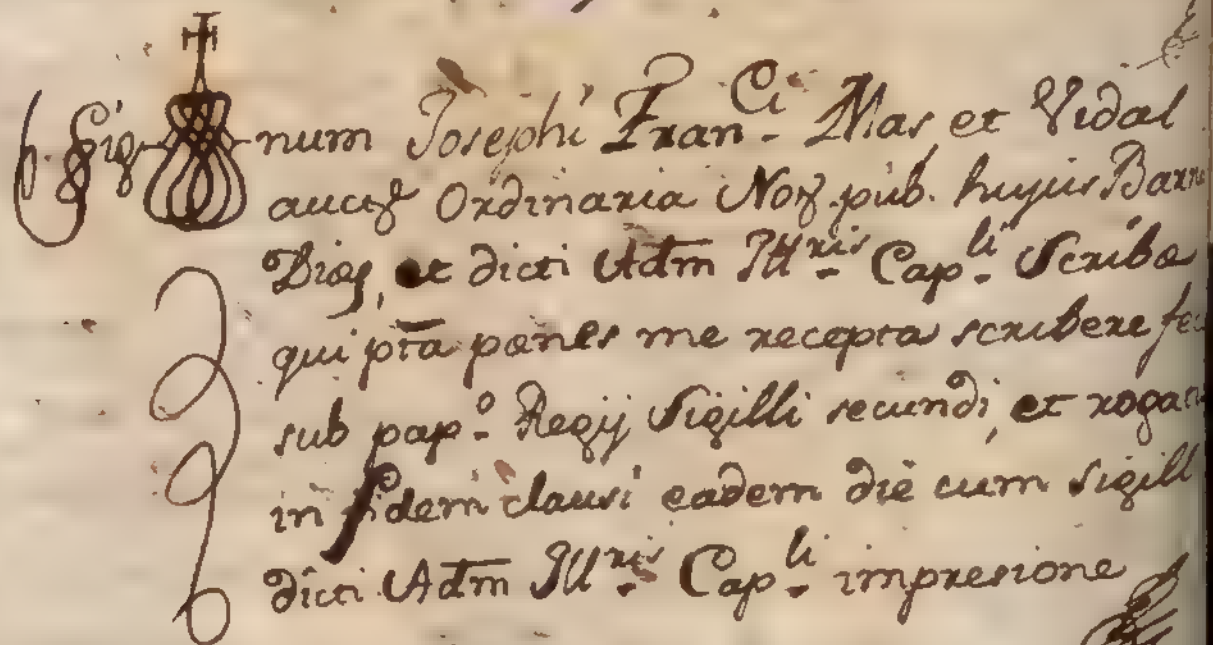 Sig-num Josephi Fran.ci Mas, et Vidal
auct.e Ordinaria Not. pub. hujus Barne
Dios, et dicti Adm Ill.ris Cap.li Scriba
qui pta pænes me recepta scribere fe
sub pap.o Regij Sigilli secundi, et rogat
in fidem clausi eadem die cum sigill
dicti Adm Ill.ris Cap.li impresione